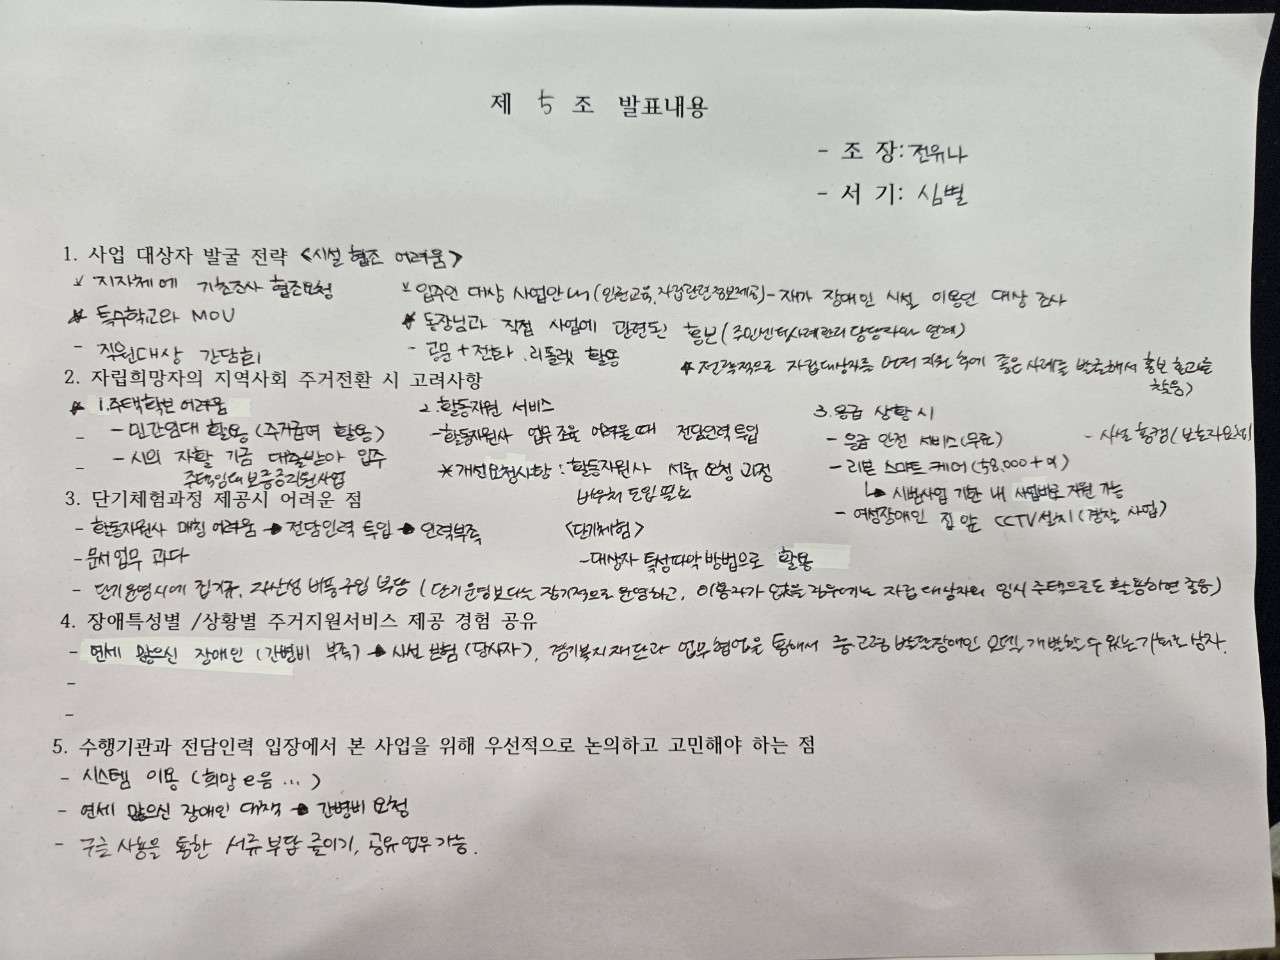 제 5 조 발표내용
- 조 장: 전유나
- 서 기: 심별
1. 사업 대상자 발굴 전략 <시설 협조 어려움>
* 지자체에 기초조사 협조요청
* 입주인 대상 사업안내 (인권교육, 자립관련정보제공) - 재가 장애인 시설 이용인 대상 조사
* 특수학교와 MOU
* 동장님과 직접 사업에 관련된 홍보 (주민센터사례관리 담당자와 연계)
- 직원대상 간담회
- 공문 + 전화, 리플렛 활용
* 전략적으로 자립대상자를 먼저 지원 후에 좋은 사례를 발굴해서 홍보 효과를
찾음)
2. 자립희망자의 지역사회 주거전환 시 고려사항
* 1. 주택확보 어려움
- 민간임대 활용 (주거급여 활용)
- 시의 자활 기금 대출받아 입주
주택임대보증금지원사업
2. 활동지원 서비스
- 활동지원사 업무 조율 어려울때 전담인력 투입
* 개선요청사항 : 활동지원사 서류 요청 과정
바우처 도입 필요
3. 응급 상황 시
- 응급 안전 서비스 (무료)
- 리본 스마트 케어 (58,000+α)
↳ 시범사업 기한 내 사업비로 지원 가능
- 여성장애인 집 앞 CCTV설치 (경찰 사업)
- 시설 환경
3. 단기체험과정 제공시 어려운 점
- 활동지원사 매칭 어려움 → 전담인력 투입 → 인력부족
- 문서업무 과다
<단기체험>
- 대상자 특성파악 방법으로 활용
- 단기운영시에 집기류, 자산성 비품구입 부담 (단기운영보다는 장기적으로 운영하고, 이용자가 없을 경우에는 자립 대상자의 임시 주택으로도 활용하면 좋음)
4. 장애특성별 /상황별 주거지원서비스 제공 경험 공유
- 연세 많으신 장애인 (간병비 부족) → 시선 변험 (당사자), 경기복지재단과 업무 협업을 통해서 중고령 발달장애인 인식 개발할 수 있는 기회로 삼자.
-
-
5. 수행기관과 전담인력 입장에서 본 사업을 위해 우선적으로 논의하고 고민해야 하는 점
- 시스템 이용 (희망e음 ...)
- 연세 많으신 장애인 대책 → 간병비 요청
- 구글 사용을 통한 서류부담 줄이기, 공유업무 가능.